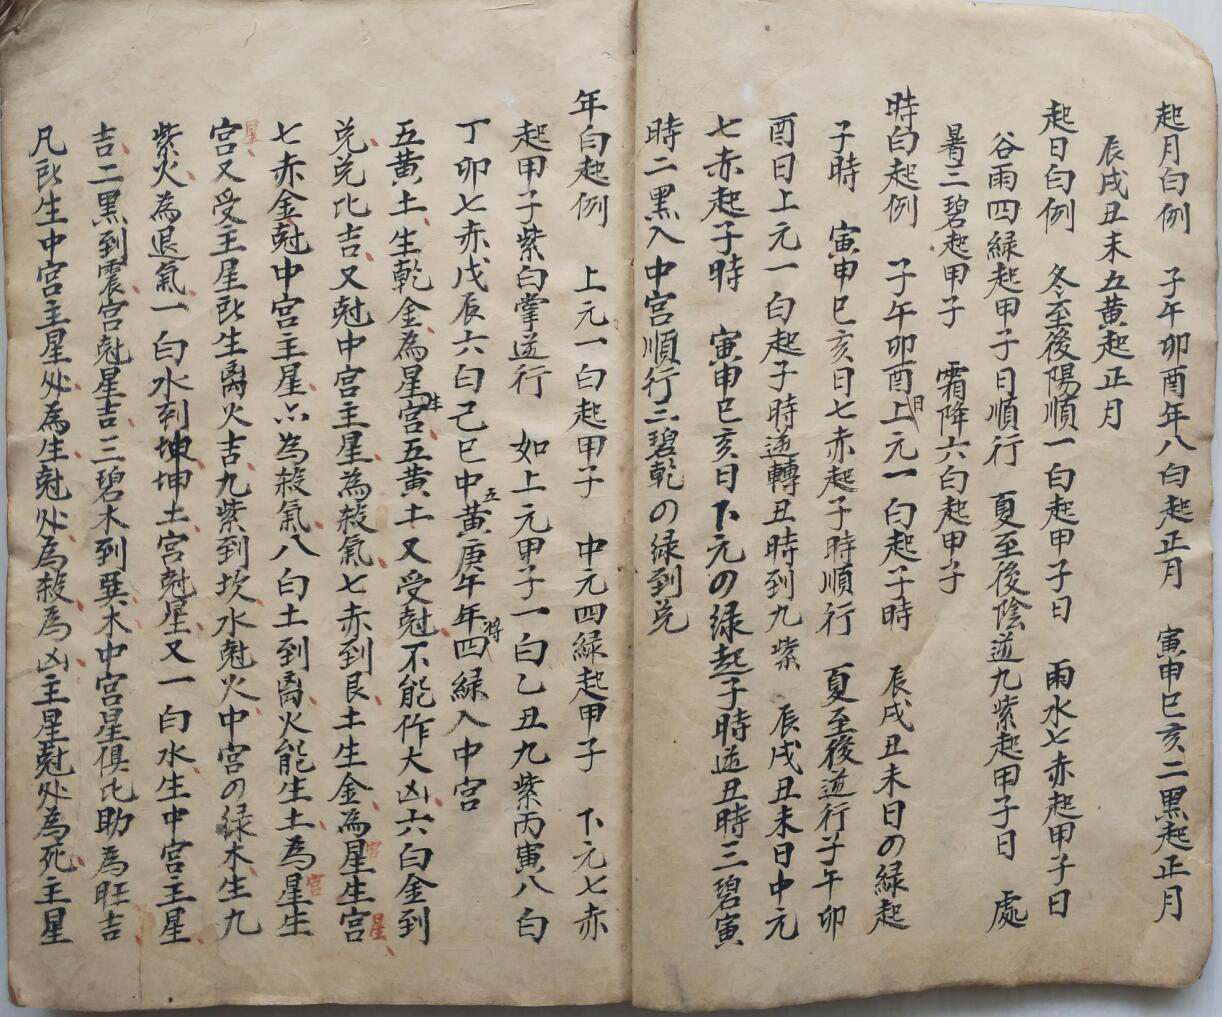 起月白例 子午卯酉年八白起正月 寅申巳亥二黑起正月
辰戌丑未五黄起正月
起日白例 冬至後陽順一白起甲子日 雨水七赤起甲子日
谷雨四緑起甲子日順行 夏至後陰逆九紫起甲子日 處
暑三碧起甲子 霜降六白起甲子
時白起例 子午卯酉日上元一白起子時 辰戌丑未日の緑起
子時 寅申巳亥日七赤起子時順行 夏至後逆行子午卯
酉日上元一白起子時逆轉丑時到九紫 辰戌丑未日中元
七赤起子時 寅申巳亥日下元の緑起子時逆丑時三碧寅
時二黑入中宫順行三碧乾の緑到兑
年白起例 上元一白起甲子 中元四緑起甲子 下元七赤
起甲子紫白掌逆行 如上元甲子一白乙丑九紫丙寅八白
丁卯七赤戊辰六白己巳中五黄庚午年四得緑入中宫
五黄土生乾金為星生宫五黄土又受尅不能作大凶六白金到
兑兑比吉又尅中宫主星為殺氣七赤到艮土生金為宫星生宫星
七赤金尅中宫主星亦為殺氣八白土到離火能生土為宫星生
宫星又受主星所生離火吉九紫到坎水尅火中宫の緑木生九
紫火為退氣一白水到坤坤土宫尅星又一白水生中宫主星
吉二黑到震宫尅星吉三碧木到巽木中宫星俱比助為旺吉
凡所生中宫主星处為生尅处為殺為凶主星尅处為死主星